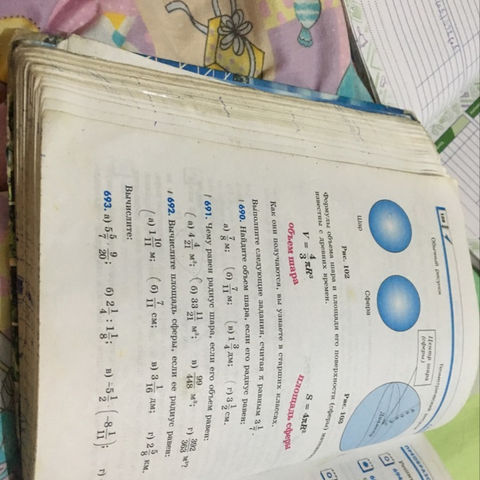 Обычный рисунок
Центр шара
(сферы)
Шар
Сфера
Рис. 102
Рис. 103
Формулы объема шара и площади его поверхности (сферы)
известны с древних времен.
объем шара
площадь сферы
V = 4/3 πR³
S = 4πR²
Как они получаются, вы узнаете в старших классах.
Выполните следующие задания, считая π равным 3 1/7.
690. Найдите объем шара, если его радиус равен:
а) 7/8 м; б) 7/11 м; в) 1 3/4 дм; г) 3 1/2 см.
691. Чему равен радиус шара, если его объем равен:
а) 4 4/21 м³; б) 33 11/21 м³; в) 99/448 м³; г) 362/363 м³?
692. Вычислите площадь сферы, если ее радиус равен:
а) 1 10/11 м; б) 7/11 см; в) 3 1/16 дм; г) 2 5/8 км.
Вычислите:
693. а) 5 5/7 · 9/20; б) 2 1/4 : 1 1/8; в) -5 1/2 · (-8 1/11); г)